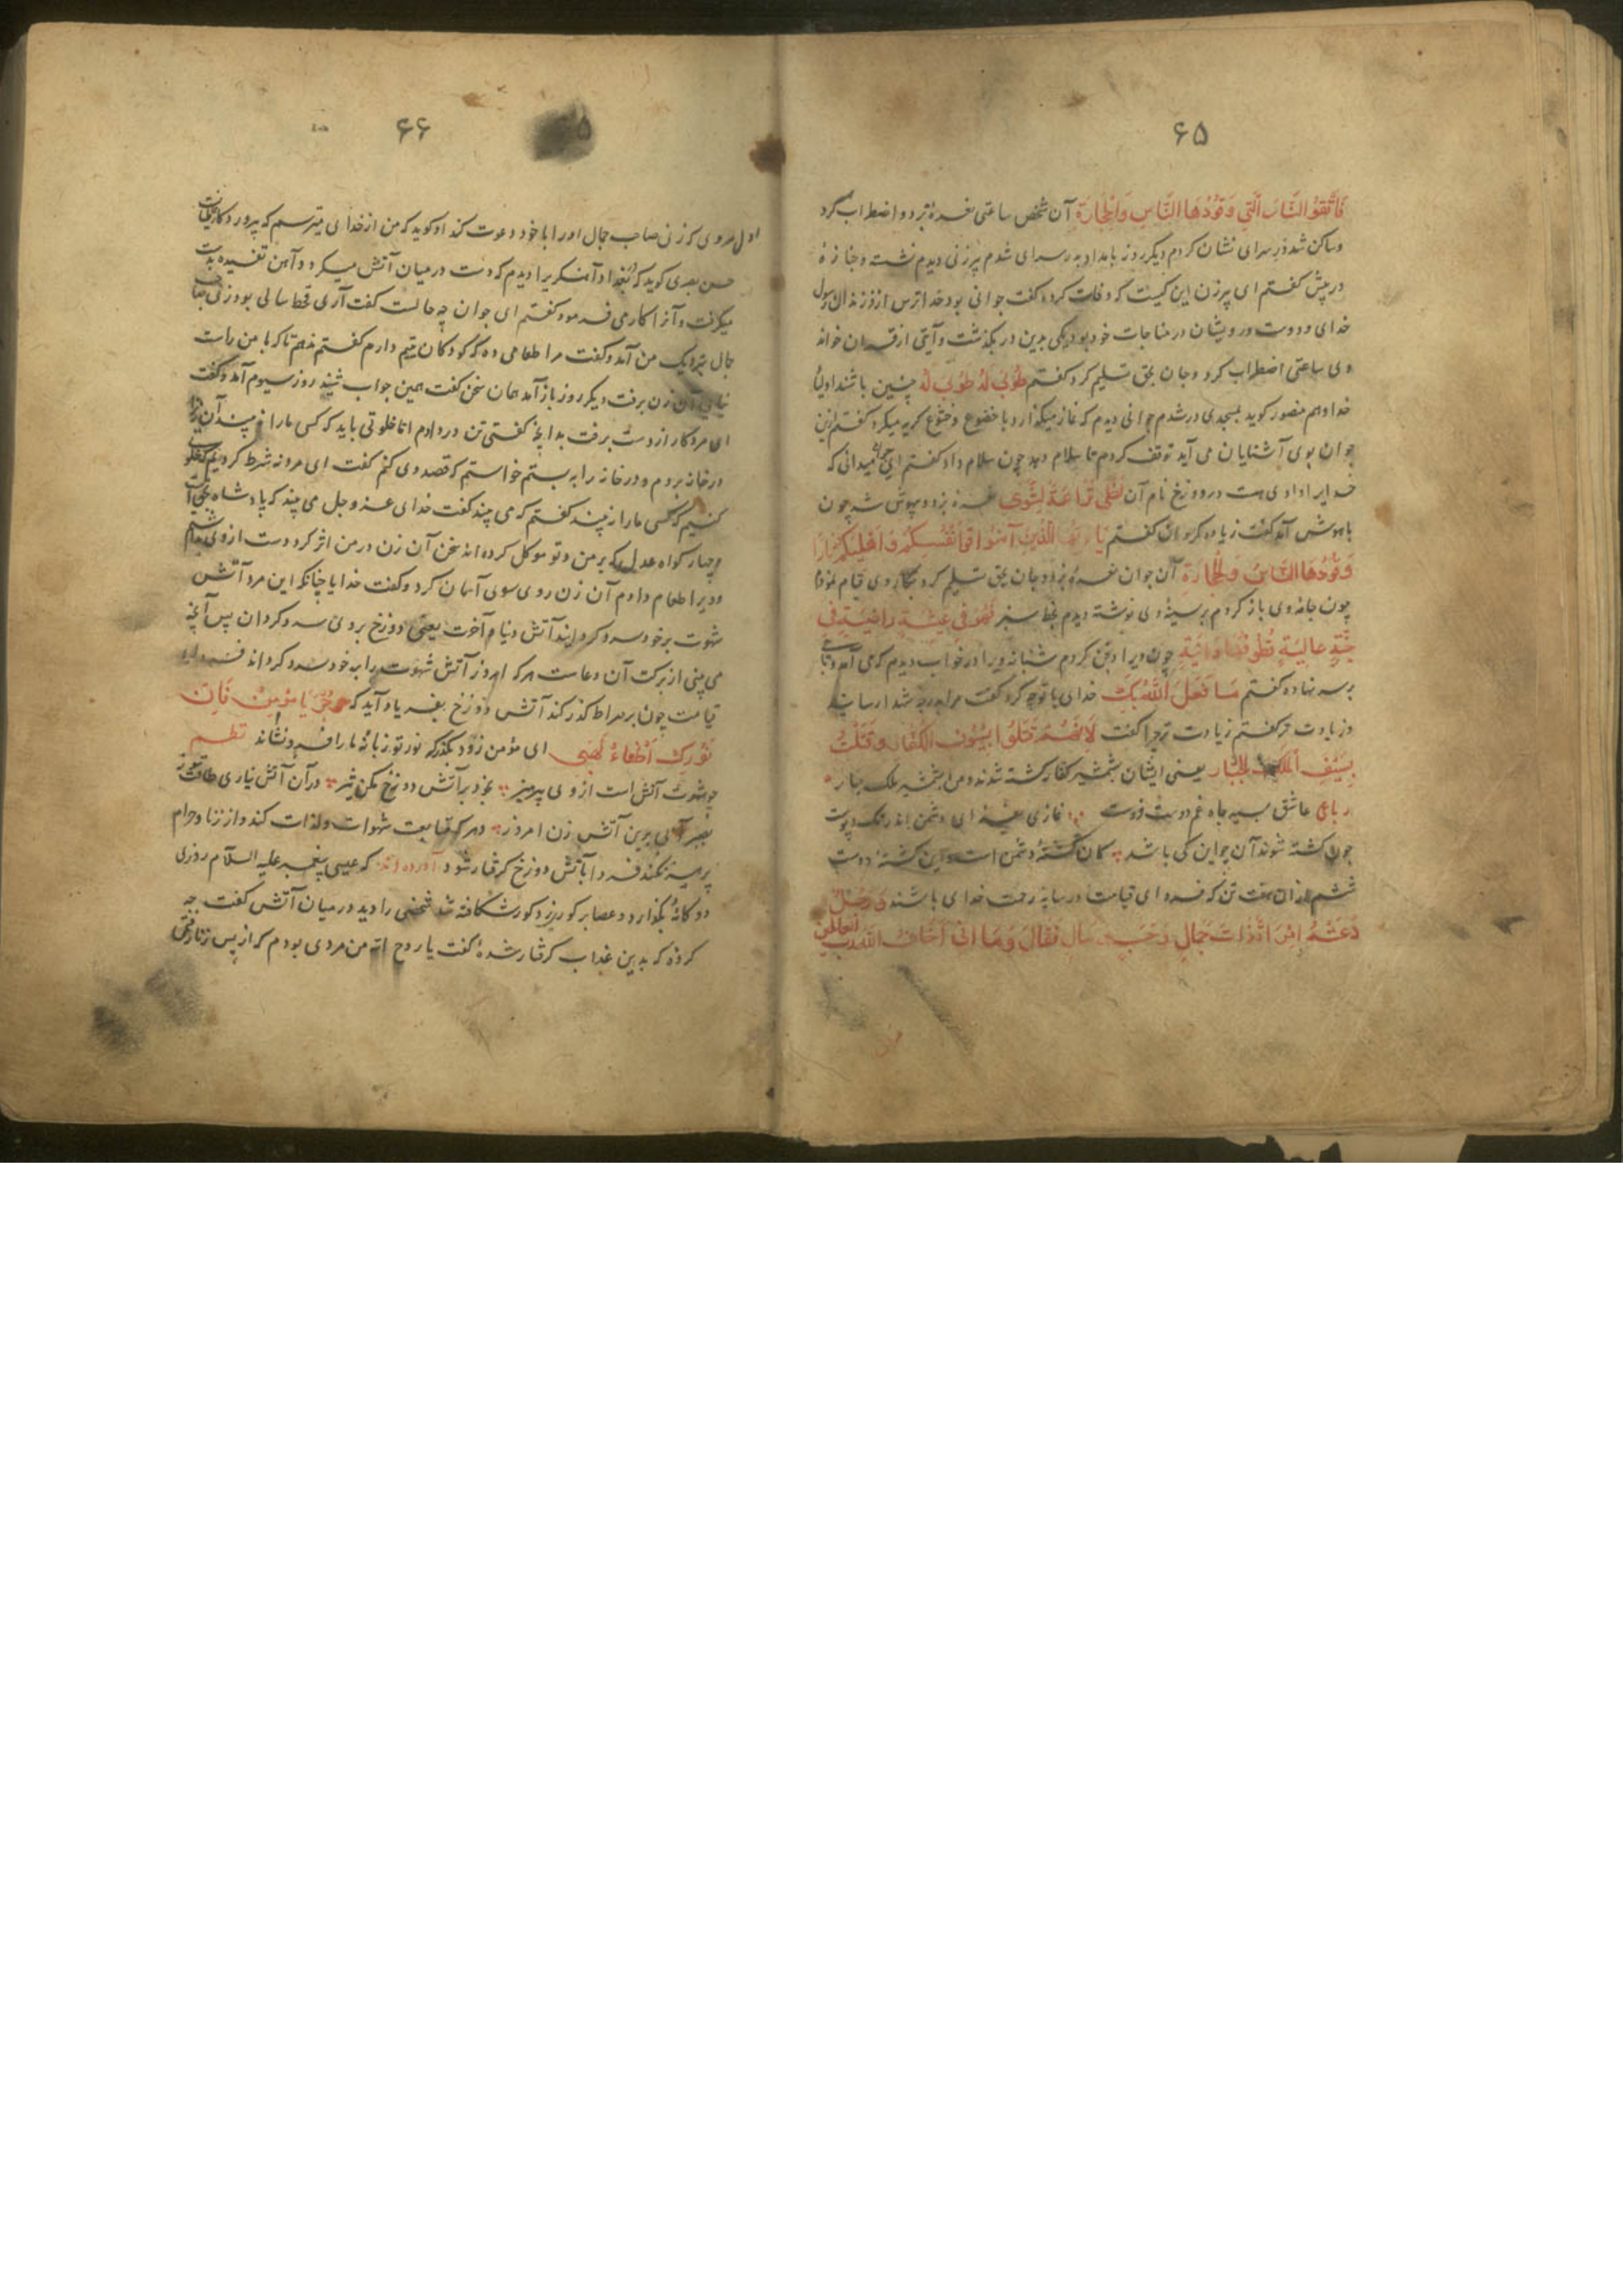 ۶۵
فَاتَّقُوا النَّارَ الَّتِي وَقُودُهَا النَّاسِ وَالْحِجَارَة آن شخص ساعتی نعرهٔ بزد و اضطراب کرد
و ساکن شد در سرای نشان کردم دیکر روز بامداد بدر سرای شدم پیرزنی دیدم نشسته و جنازهٔ
در پیش گفتم ای پیرزن این کیست که وفات کرده گفت جوانی بود خداترس از فرزندان رسول
خدای و دوست درویشان در مناجات خود بود یکی بدین در بگذشت و آیتی از قرآن خواند
وی ساعتی اضطراب کرد و جان بحق تسلیم کرد گفتم طُوبی لَهُ طُوبی لَهُ چنین باشند اولیاء
خدا و هم منصور کوید بمسجدی در شدم جوانی دیدم که نماز میکذارد با خضوع و خشوع کریه میکرد گفتم این
جوان بوی آشنایان می آید توقف کردم تا سلام دهد چون سلام داد گفتم ای جوان میدانی که
خدایرا وادی هست در دوزخ نام آن لَظَی نَزَّاعَةً لِلشَّوی نعرهٔ بزد و بیهوش شد چون
باهوش آمد گفت زیاده کن گفتم یَاءَیُّهَا الَّذِینَ آمَنُوا قُوا اَنْفُسَکُمْ وَاَهْلِیکُمْ نَارًا
وَقُودُهَا النَّاسُ وَالْحِجَارَة آن جوان نعرهٔ بزد و جان بحق تسلیم کرد
چون جامهٔ وی باز کردم بر سینهٔ وی نوشته دیدم بخط سبز فَهُوَ فِی عِیشَةٍ رَاضِیَةٍ فِی
جَنَّةٍ عَالِیَةٍ قُطُوفُهَا دَانِیَةٌ چون ویرا دفن کردم شبانه ویرا در خواب دیدم که می آمد و تاجی
بر سر نهاده گفتم مَا فَعَلَ اللهُ بِکَ خدای با تو چه کرد گفت مرا بدرجهٔ شهدا رسانید
و زیادت تر گفتم زیادت تر چرا گفت لَاَنَّهُمْ قُتِلُوا بِسُیُوفِ الْکُفَّار وَقُتِلْتُ
بِسَیْفِ الْمَلِکِ الْجَبَّار یعنی ایشان بشمشیر کفار کشته شدند و من بشمشیر ملک جبار
رباعی عاشق
چون کشته شوند آن چو این کی باشد کان کشتهٔ دشمن است و این کشتهٔ دوست
ششم از آن هفت تن که فردای قیامت در سایهٔ رحمت خدای باشند وَرَجُلٌ
دَعَتْهُ اِمْرَ اَةٌ ذَاتَ جَمَالٍ وَحَسَبٍ فَقَالَ اِنِّی اَخَافُ اللهَ رَبَّ الْعالَمِین
۶۶
مردی که زنی صاحب جمال اورا با خود دعوت کند او کوید که من از خدای میترسم که پروردکار
حسن بصری کوید که ببغداد آهنکریرا دیدم که دست در میان آتش میکرد و آهن تفسیده بدست
میکرفت و آنرا کار می فرمود گفتم ای جوان چه حالست گفت آری قحط سالی بود زنی صاحب
جمال نزدیک من آمد و گفت مرا طعامی ده که کودکان یتیم دارم گفتم ندهم تا که با من راست
نیایی آن زن برفت دیکر روز باز آمد همان سخن گفت همین جواب شنید روز سیوم آمد و گفت
ای مرد کار از دست برفت بدانچه کفتی تن در دادم اما خلوتی باید که کس مارا نه بیند آن زنرا
در خانه بردم و در خانه را به بستم خواستم که قصد وی کنم گفت ای مرد نه شرط کردیم که خلوت
کنیم که کس مارا نه بیند گفتم که می بیند گفت خدای عز و جل می بیند که پادشاه
و چهار کواه عدل که بر من و تو موکل کرده اند سخن آن زن در من اثر کرد دست از وی
و ویرا طعام دادم آن زن روی سوی آسمان کرد و گفت خدایا چنانکه این مرد آتش
شهوت بر خود سرد کردانید آتش دنیا و آخرت یعنی دوزخ بر وی سرد کردان پس آنچه
می بینی از برکت آن دعاست هر که امروز آتش شهوت را بر خود سرد کرداند فردای
قیامت چون بر صراط کذر کند آتش دوزخ بفریاد آید که جُزْ یَا مُؤْمِنُ فَاِنَّ
نُورَکَ اَطْفَاءَ لَهَبِی ای مؤمن زود بکذر که نور تو زبانهٔ مارا فرو نشاند نظم
چو شهوت آتش است از وی بپرهیز بخود بر آتش دوزخ مکن تیز در آن آتش نداری طاقت
بصبر آبی برین آتش زن امروز و هر که متابعت شهوات و لذات کند و از زنا و حرام
پرهیز نکند فردا بآتش دوزخ کرفتار شود آورده اند که عیسی پیغمبر علیه السلام روزی
دوکانهٔ بکذارد و عصا بر کور زد کور شکافته شد شخصی را دید در میان آتش گفت چه
کردهٔ که بدین عذاب کرفتار شدهٔ گفت یا روح الله من مردی بودم که از پس زنان رفتمی